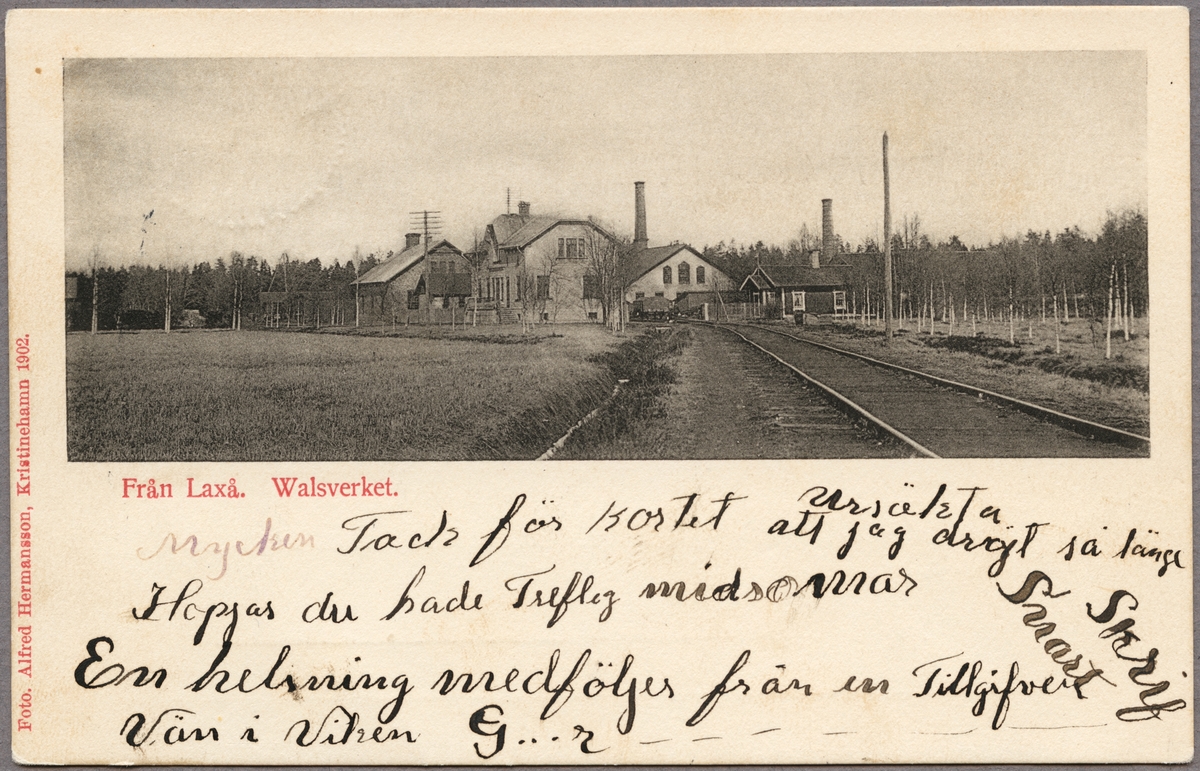 Foto. Alfred Hermansson, Kristinehamn 1902.
Från Laxå. Walsverket.
Mycken Tack för kortet Ursäkta
att jag dröjt så länge
Hoppas du hade Treflig midsommar
En helsning medföljer från en Tillgifven
Vän i Viken G...r
Skrif
Snart